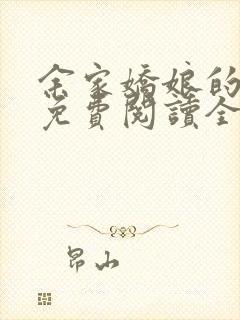 余家嬌娘的
免費閱讀全
昂山